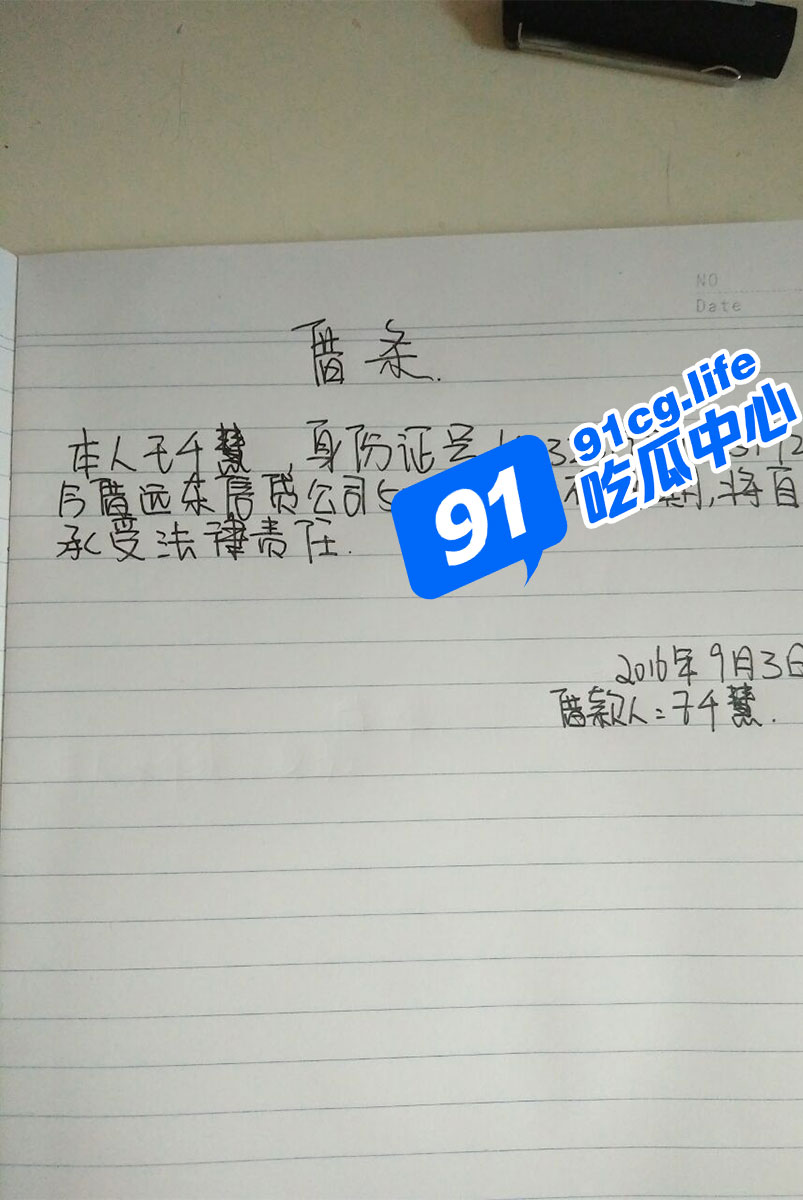 NO
Date
借条.
本人于千慧,身份证号
今借远东信贷公司5 期,将自
承受法律责任.
2016年9月3日
借款人:于千慧.
91
91cg.life
吃瓜中心